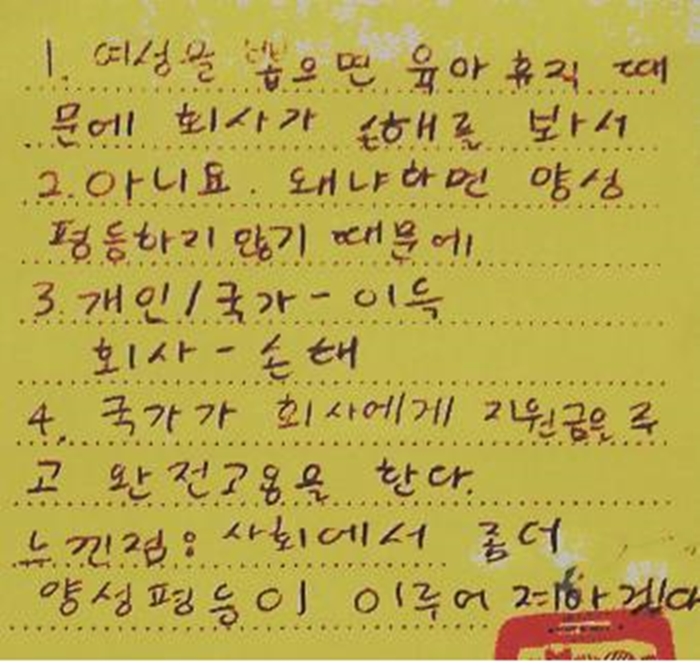 1. 여성을 뽑으면 육아 휴직 때
문에 회사가 손해를 봐서
2. 아니요. 왜냐하면 양성
평등하지 않기 때문에
3. 개인/국가 - 이득
회사 - 손해
4. 국가가 회사에게 지원금은 주
고 완전고용을 한다.
느낀점: 사회에서 좀더
양성평등이 이루어 져야 겠다